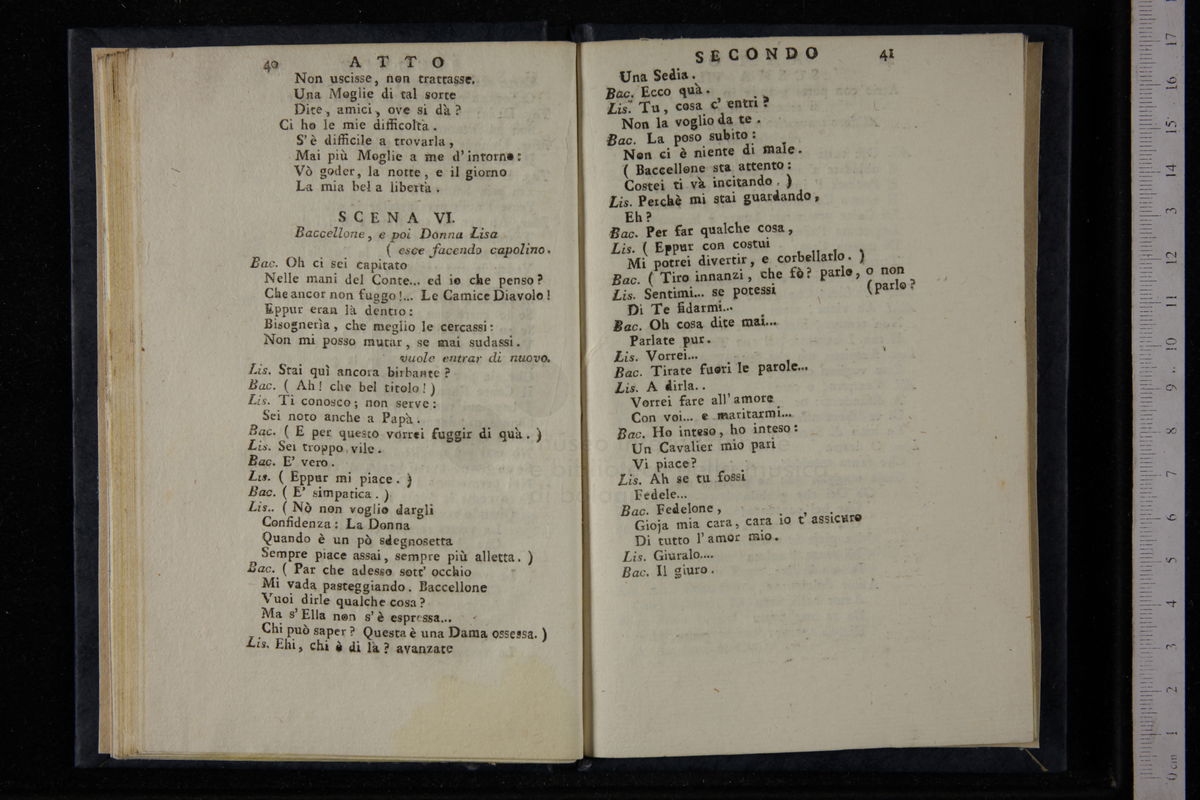 40 ATTO
Non uscisse, non trattasse.
Una Moglie di tal sorte
Dite, amici, ove si dà?
Ci ho le mie difficoltà.
S'è difficile a trovarla,
Mai più Moglie a me d'intorno:
Vò goder, la notte, e il giorno
La mia bel a libertà.
SCENA VI.
Baccellone, e poi Donna Lisa
( esce facendo capolino.
Bac. Oh ci sei capitato
Nelle mani del Conte... ed io che penso?
Che ancor non fuggo!... Le Camice Diavolo!
Eppur eran là dentro:
Bisognerìa, che meglio le cercassi:
Non mi posso mutar, se mai sudassi.
vuole entrar di nuovo.
Lis. Stai quì ancora birbante?
Bac. ( Ah! che bel titolo!)
Lis. Ti conosco; non serve:
Sei noto anche a Papà.
Bac. ( E per questo vorrei fuggir di quà. )
Lis. Sei troppo vile.
Bac. E' vero.
Lis. ( Eppur mi piace. )
Bac. ( E' simpatica. )
Lis.. ( Nò non voglio dargli
Confidenza: La Donna
Quando è un pò sdegnosetta
Sempre piace assai, sempre più alletta. )
Bac. ( Par che adesso sott' occhio
Mi vada pasteggiando. Baccellone
Vuoi dirle qualche cosa?
Ma s'Ella non s'è espressa...
Chi può saper? Questa è una Dama ossessa. )
Lis. Ehi, chi è di là? avanzate
SECONDO 41
Una Sedia.
Bac. Ecco quà.
Lis. Tu, cosa c'entri?
Non la voglio da te.
Bac. La poso subito:
Non ci è niente di male.
( Baccellone sta attento:
Costei ti và incitando. )
Lis. Perchè mi stai guardando,
Eh?
Bac. Per far qualche cosa,
Lis. ( Eppur con costui
Mi potrei divertir, e corbellarlo. )
Bac. ( Tiro innanzi, che fò? parlo, o non
(parlo?
Lis. Sentimi... se potessi
Di Te fidarmi...
Bac. Oh cosa dite mai...
Parlate pur.
Lis. Vorrei...
Bac. Tirate fuori le parole...
Lis. A dirla..
Vorrei fare all'amore
Con voi... e maritarmi...
Bac. Ho inteso, ho inteso:
Un Cavalier mio pari
Vi piace?
Lis. Ah se tu fossi
Fedele...
Bac. Fedelone,
Gioja mia cara, cara io t'assicuro
Di tutto l'amor mio.
Lis. Giuralo....
Bac. Il giuro.